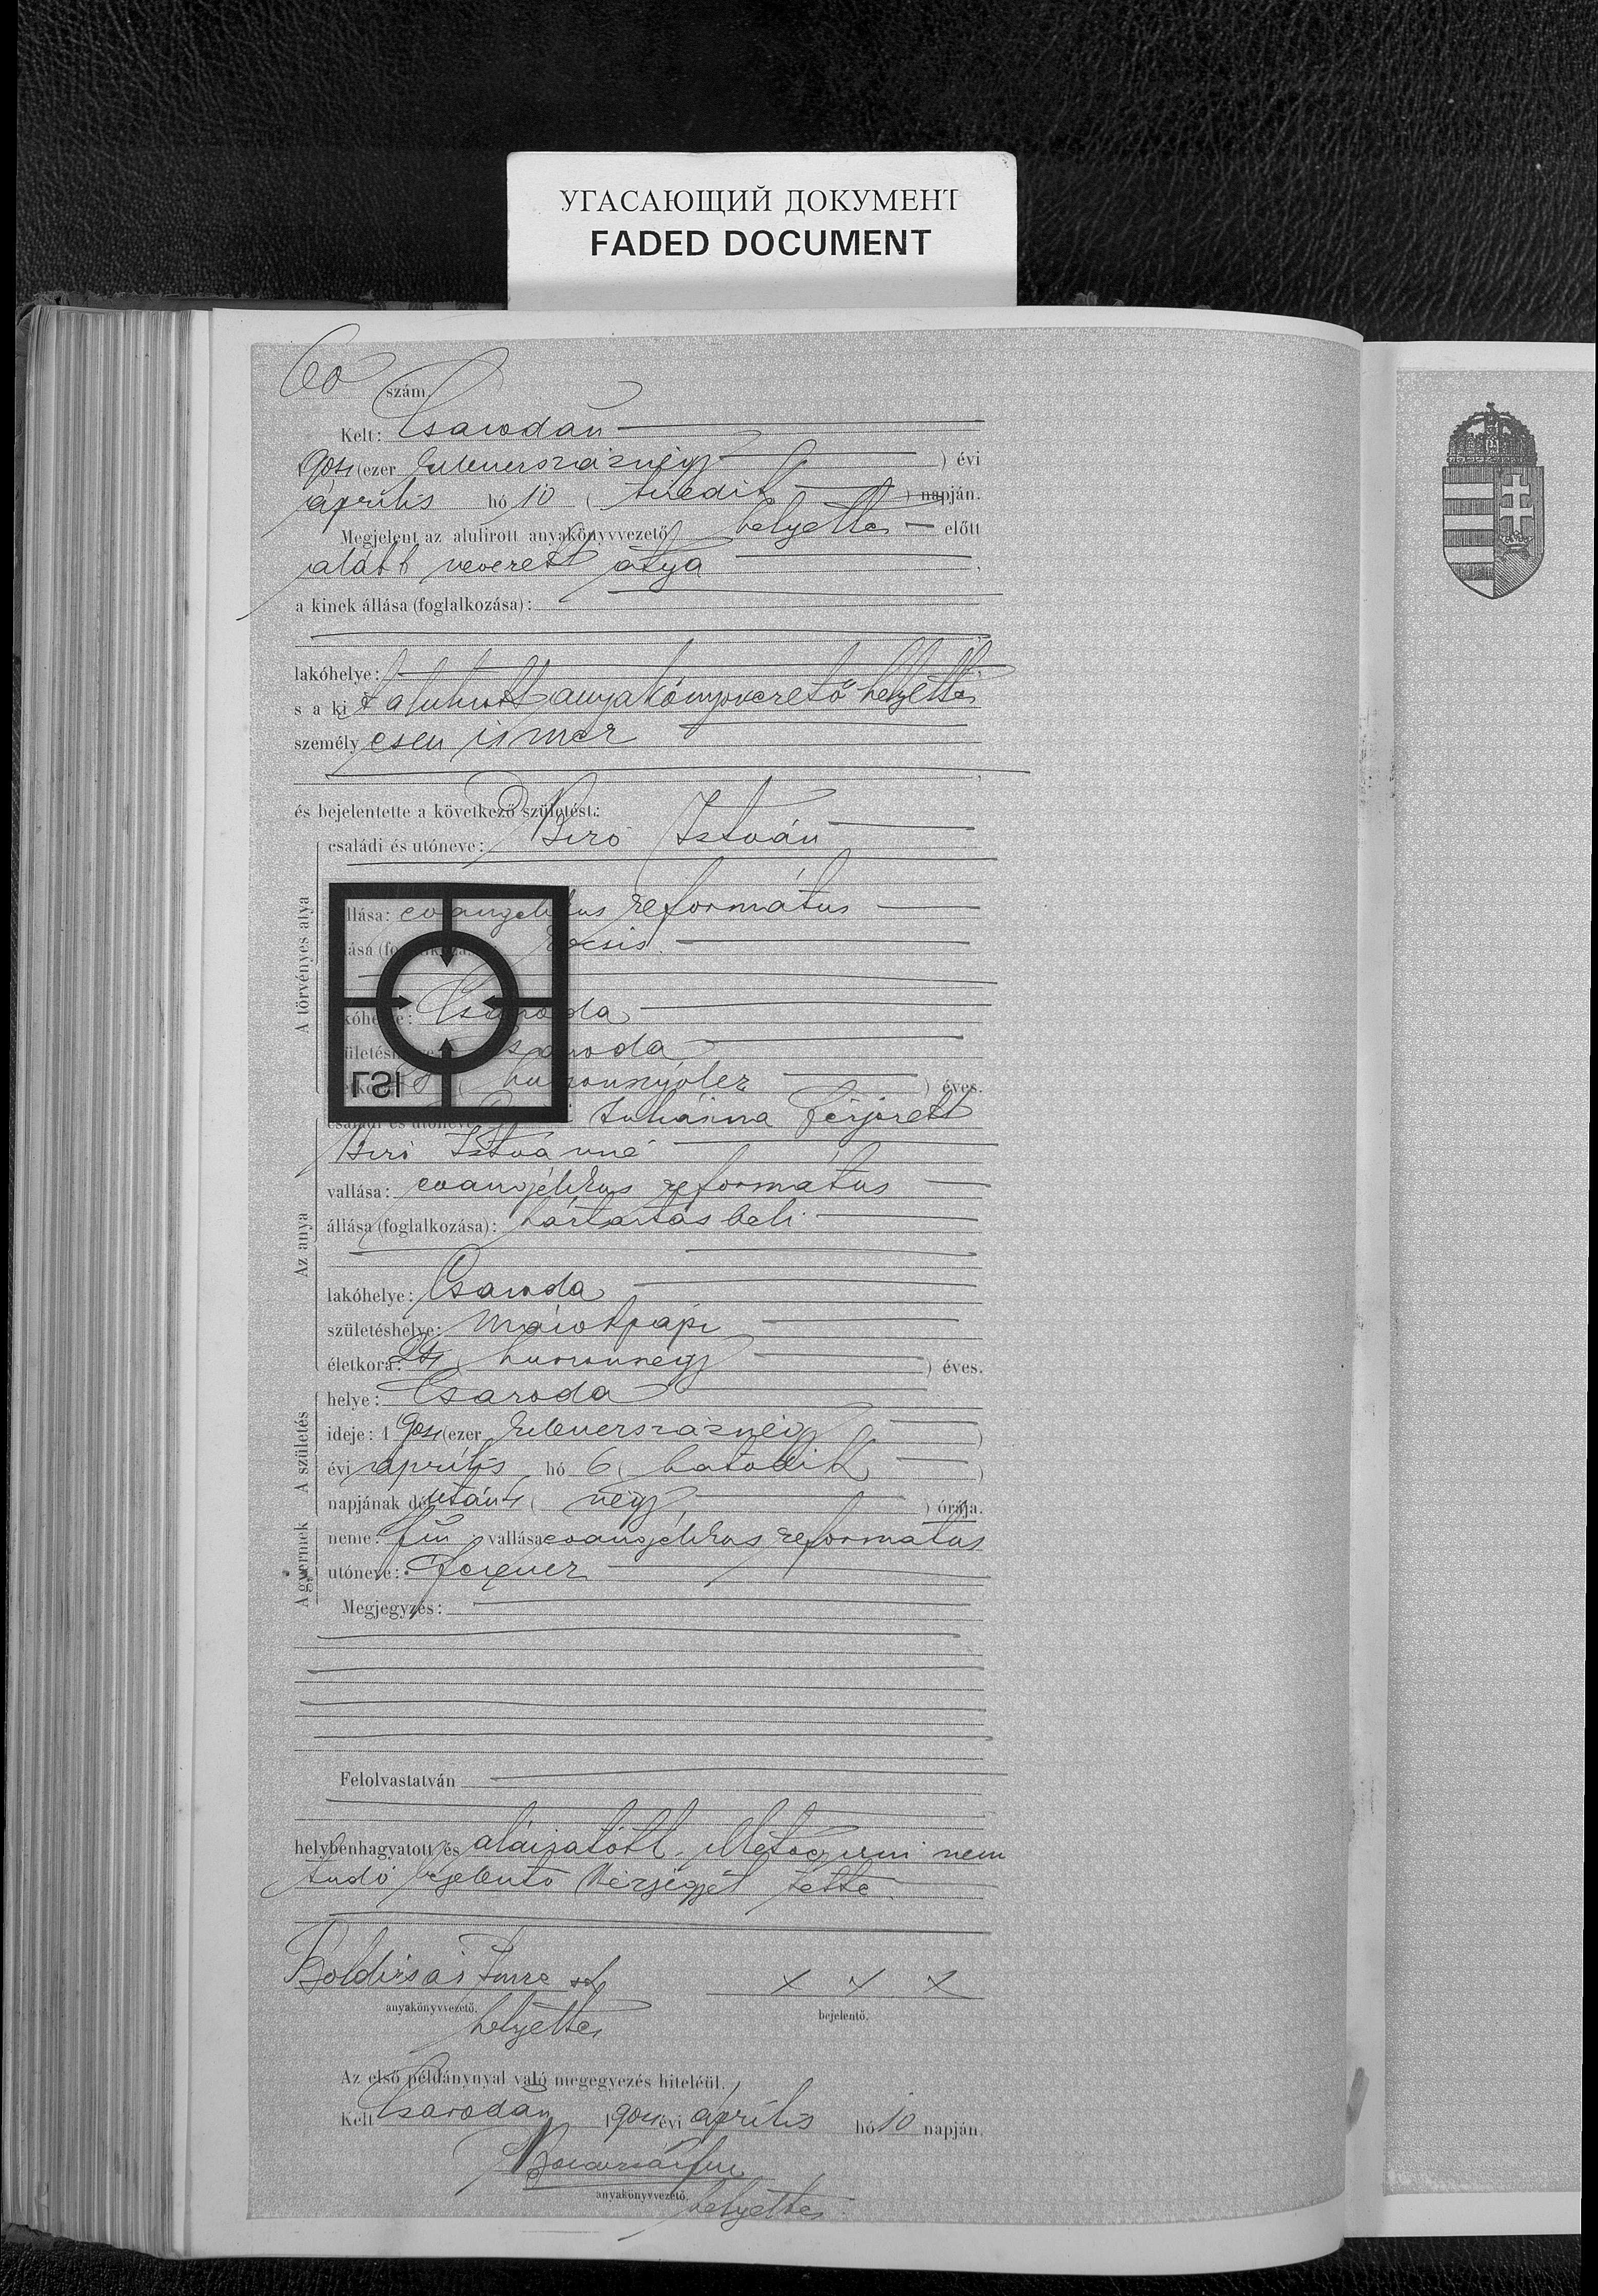 УГАСАЮЩИЙ ДОКУМЕНТ
FADED DOCUMENT
60 szám.
Kelt: Csarodán
1904 (ezer kilencszáznégy ) évi
április hó 10 ( tizedik ) napján.
Megjelent az alulirott anyakönyvvezető helyettes előtt
alább nevezett atya ,
a kinek állása (foglalkozása):
lakóhelye: ,
s a ki t alulirott anyakönyvvezető helyettes
személy esen ismer
,
és bejelentette a következő születést:
A törvényes atya
családi és utóneve: Biró István
llása: evangelikus református
kocsis.
Csaroda
Csaroda
( huszonnyolcz ) éves.
LSI
Az anya
családi és utóneve Juliánna férjezett
Biró Istvánné
vallása: evangélikus református
állása (foglalkozása): háztartásbeli
lakóhelye: Csaroda
születéshelye: Márokpapi
életkora: 24 ( huszonnégy ) éves.
A születés
helye: Csaroda
ideje: 1904 (ezer kilencszáznégy )
évi április hó 6 ( hatodik )
napjának délután 4 ( négy ) órája.
A gyermek
neme: fiú vallása evangelikus református
utóneve: Ferencz
Megjegyzés:
Felolvastatván
helybenhagyatott és aláiratott. Mivel irni nem
tudó bejelentő kézjegyét tette
Imre sk
anyakönyvvezető.
helyettes
x x x
bejelentő.
Az első példánynyal való megegyezés hiteléül.
Kelt Csarodán 1904 évi április hó 10 napján.
anyakönyvvezető.
helyettes